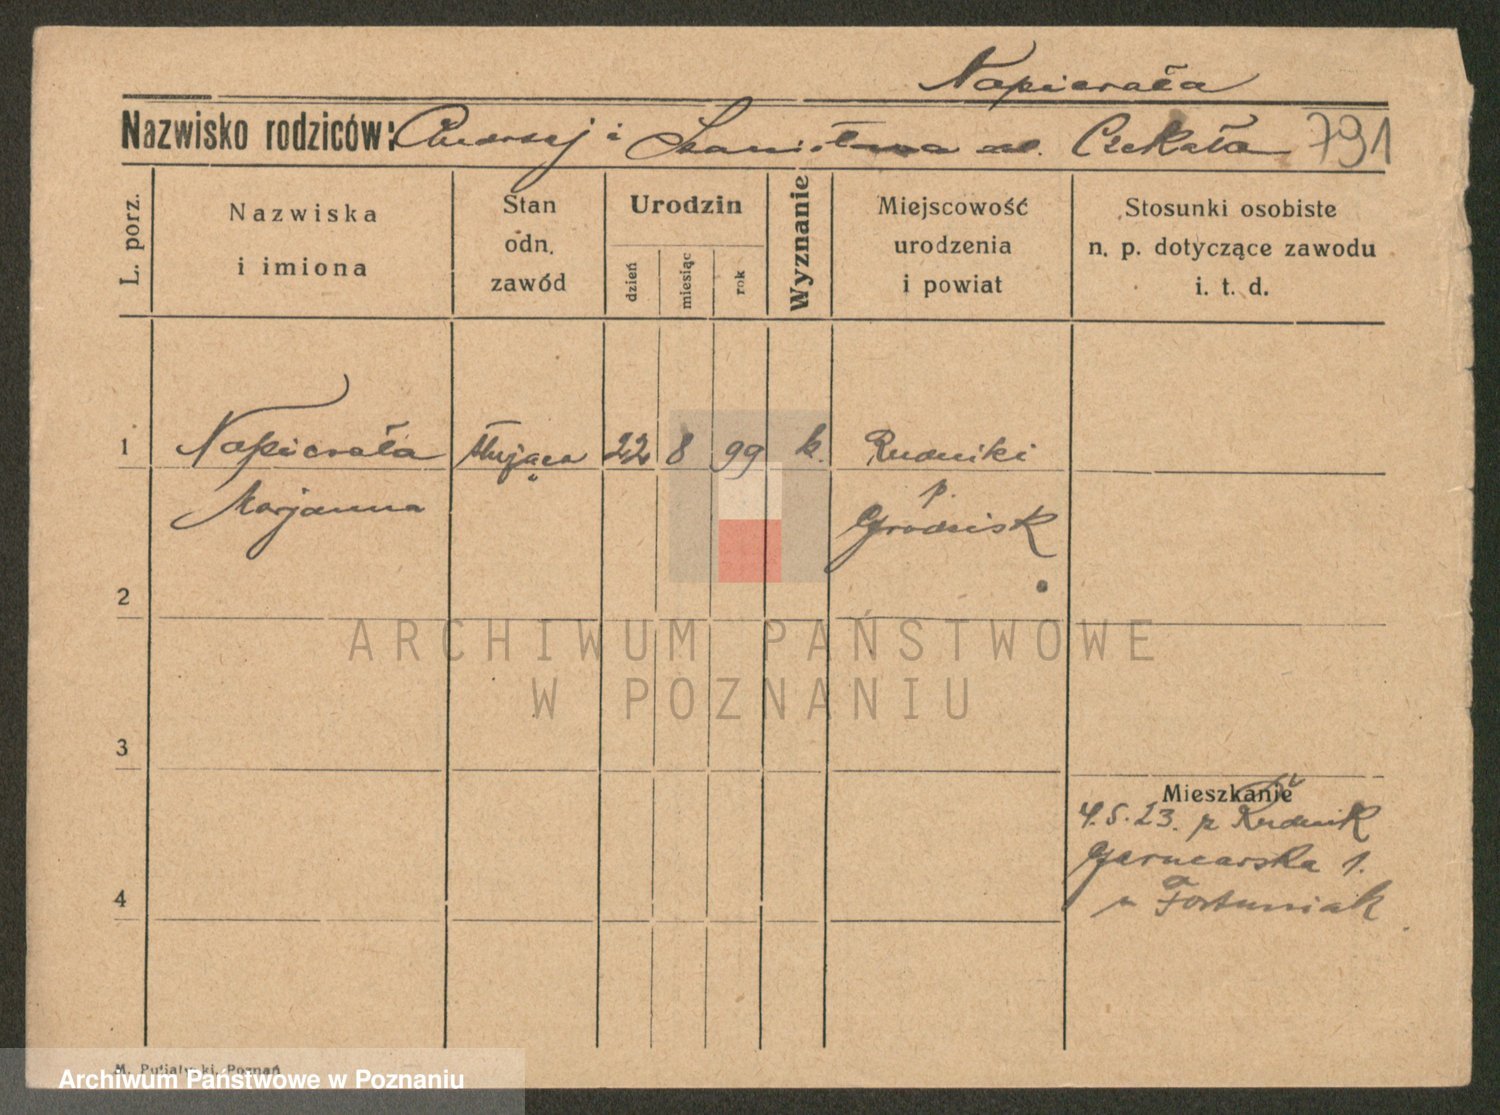 Napierała
Nazwisko rodziców: Andrzej i Stanisława Czekała 791
L. porz.
Nazwiska
i imiona
Stan
odn.
zawód
Urodzin
dzień
miesiąc
rok
Wyznanie
Miejscowość
urodzenia
i powiat
Stosunki osobiste
n. p. dotyczące zawodu
i. t. d.
1 Napierała służąca 22 8 99 k. Rudniki
Marjanna
p.
Grodzisk
2
ARCHIWUM PAŃSTWOWE
W POZNANIU
3
Mieszkanie
4.5.23. z Rudnik
Garncarska 1.
u Fortuniak
4
Poznań
Archiwum Państwowe w Poznaniu